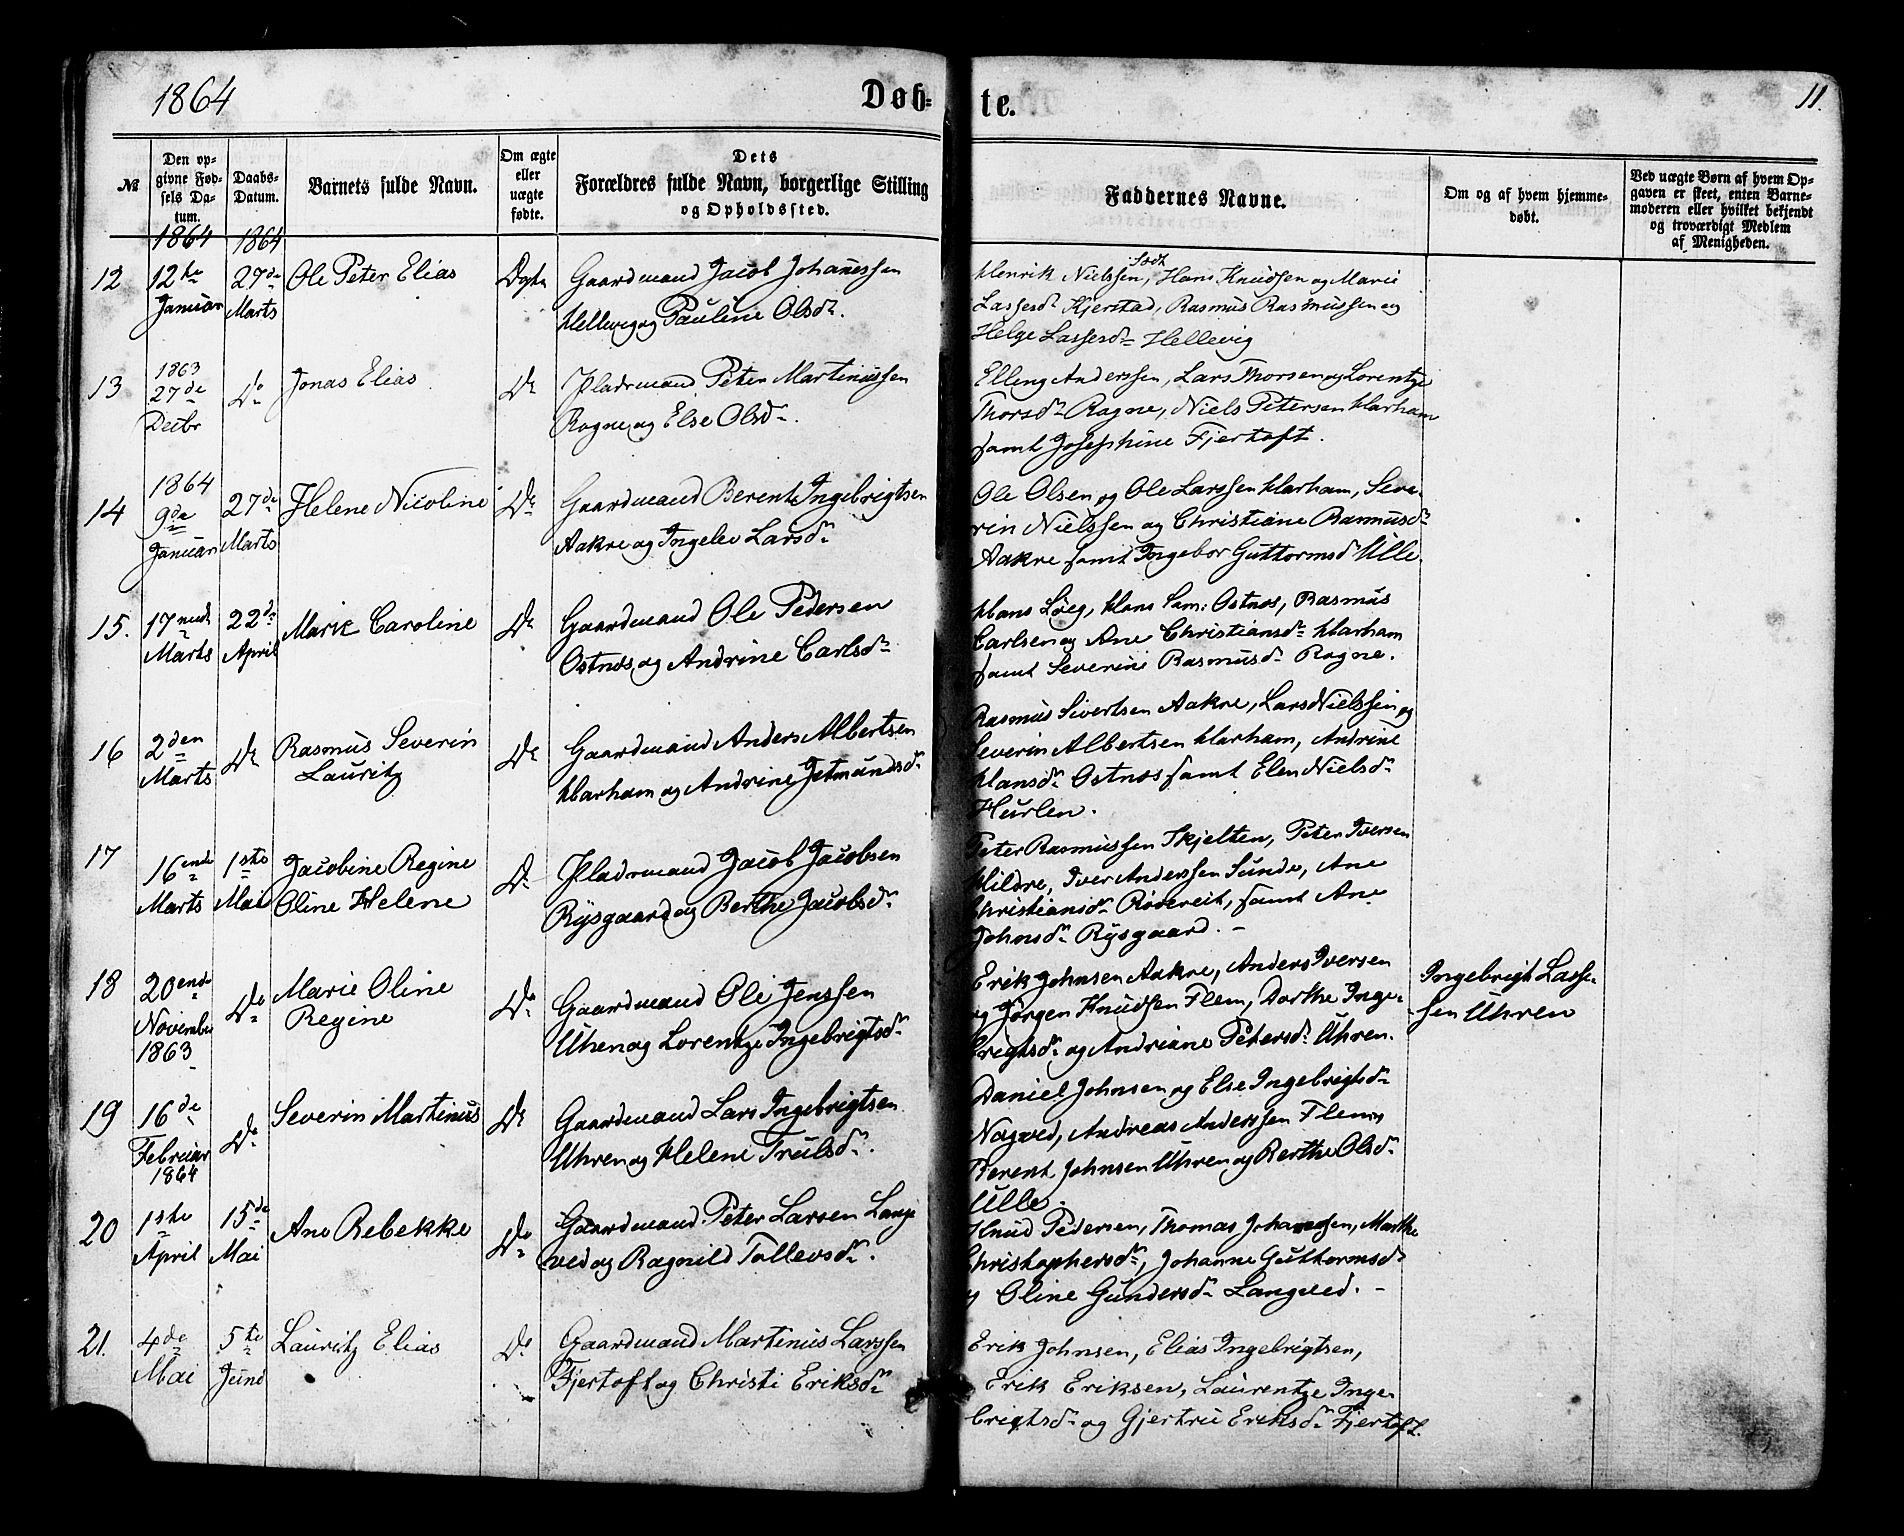 1864 Døb- te. 11.
№
Den op-
givne Fød-
sels Da-
tum.
Daabs-
Datum.
Barnets fulde Navn.
Om ægte
eller
uægte
fødte.
Dets
Forældres fulde Navn, borgerlige Stilling
og Opholdssted.
Faddernes Navne.
Om og af hvem hjemme-
døbt.
Ved uægte Børn af hvem Op-
gaven er skeet, enten Barne-
moderen eller hvilket bekjendt
og troværdigt Medlem
af Menigheden.
1864 1864
12
12te
Januar
27de
Marts
Ole Peter Elias
Ægte
Gaardmand Jacob Johanessen
Hellevig og Pauline Olsdr.
Henrik Nielssen, Hans Knudsen og Marie
Lassesdr Kjerstad, Rasmus Rasmussen og
Helge Lassesdr Hellevig
13
1863
27de
Decbr
Do
Jonas Elias
Do
Pladsmand Peter Martinussen
Rogne og Else Olsdr.
Elling Anderssen, Lars Thorsen og Lorentze
Thorsdr Rogne, Niels Petersen Harham
samt Josephine Fjertoft.
14
1864
9de
Januar
27de
Marts
Helene Nicoline
Do
Gaardmand Berent Ingebrigtsen
Aakre og Ingelev Larsdr
Ole Olsen og Ole Larssen Harham, Seve-
rin Nielssen og Christiane Rasmusdr
Aakre samt Ingebor Guttormsd Ulle.
15.
17nde
Marts
22de
April
Marie Caroline
Do
Gaardmand Ole Pedersen
Ostnes og Andrine Carlsdr
Hans Løeg, Hans Sam: Ostnes, Rasmus
Carlsen og Ane Christiansdr Harham
samt Severine Rasmusdr Rogne.
16
2den
Marts
Do
Rasmus Severin
Lauritz
Do
Gaardmand Anders Albertsen
Harham og Andrine Jetmundsdr
Rasmus Sivertsen Aakre, Lars Nielssen og
Severin Albertsen Harham, Andrine
Hansdr Ostnes samt Elen Nielsdr
Hurlen.
17
16ende
Marts
1ste
Mai
Jacobine Regine
Oline Helene
Do
Pladsmand Jacob Jacobsen
Rysgaard og Berthe Jacobsdr
Peter Rasmussen Skjelten, Peter Iversen
Hildre, Iver Anderssen Sunde, Ane
Christiansdr Rødereit, samt Ane
Johnsdr Rysgaard. -
18
20ende
November
1863
Do
Marie Oline
Regine
Do
Gaardmand Ole Jenssen
Uhren og Lorentze Ingebrigtsdr
Erik Johnsen Aakre, Anders Iversen
og Jørgen Knudsen Flem, Dorthe Inge-
brigtsdr og Andriane Petersdr Uhren.
Ingebrigt Lasse-
sen Uhren
19
16de
Februar
1864
Do
Severin Martinus
Do
Gaardmand Lars Ingebrigtsen
Uhren og Helene Trulsdr.
Daniel Johnsen og Else Ingebrigtsdr
Nogved, Andreas Anderssen Flem,
Berent Johnsen Uhren og Berthe Olsdr
Ulle.
20
1ste
April
15de
Mai
Ane Rebekke
Do
Gaardmand Peter Larsen Lange
ved og Ragnild Tollevsdr.
Knud Pedersen, Thomas Johannessen, Marthe
Christophersdr, Johanne Guttormsdr
og Oline Gundersdr Langved. -
21.
4de
Mai
5te
Juni
Lauritz Elias
Do
Gaardmand Martinus Larssen
Fjertoft og Christi Eriksdr
Erik Johnsen, Elias Ingebrigtsen,
Erik Eriksen, Laurentze Inge-
brigtsdr og Gjertru Eriksdr Fjertoft.